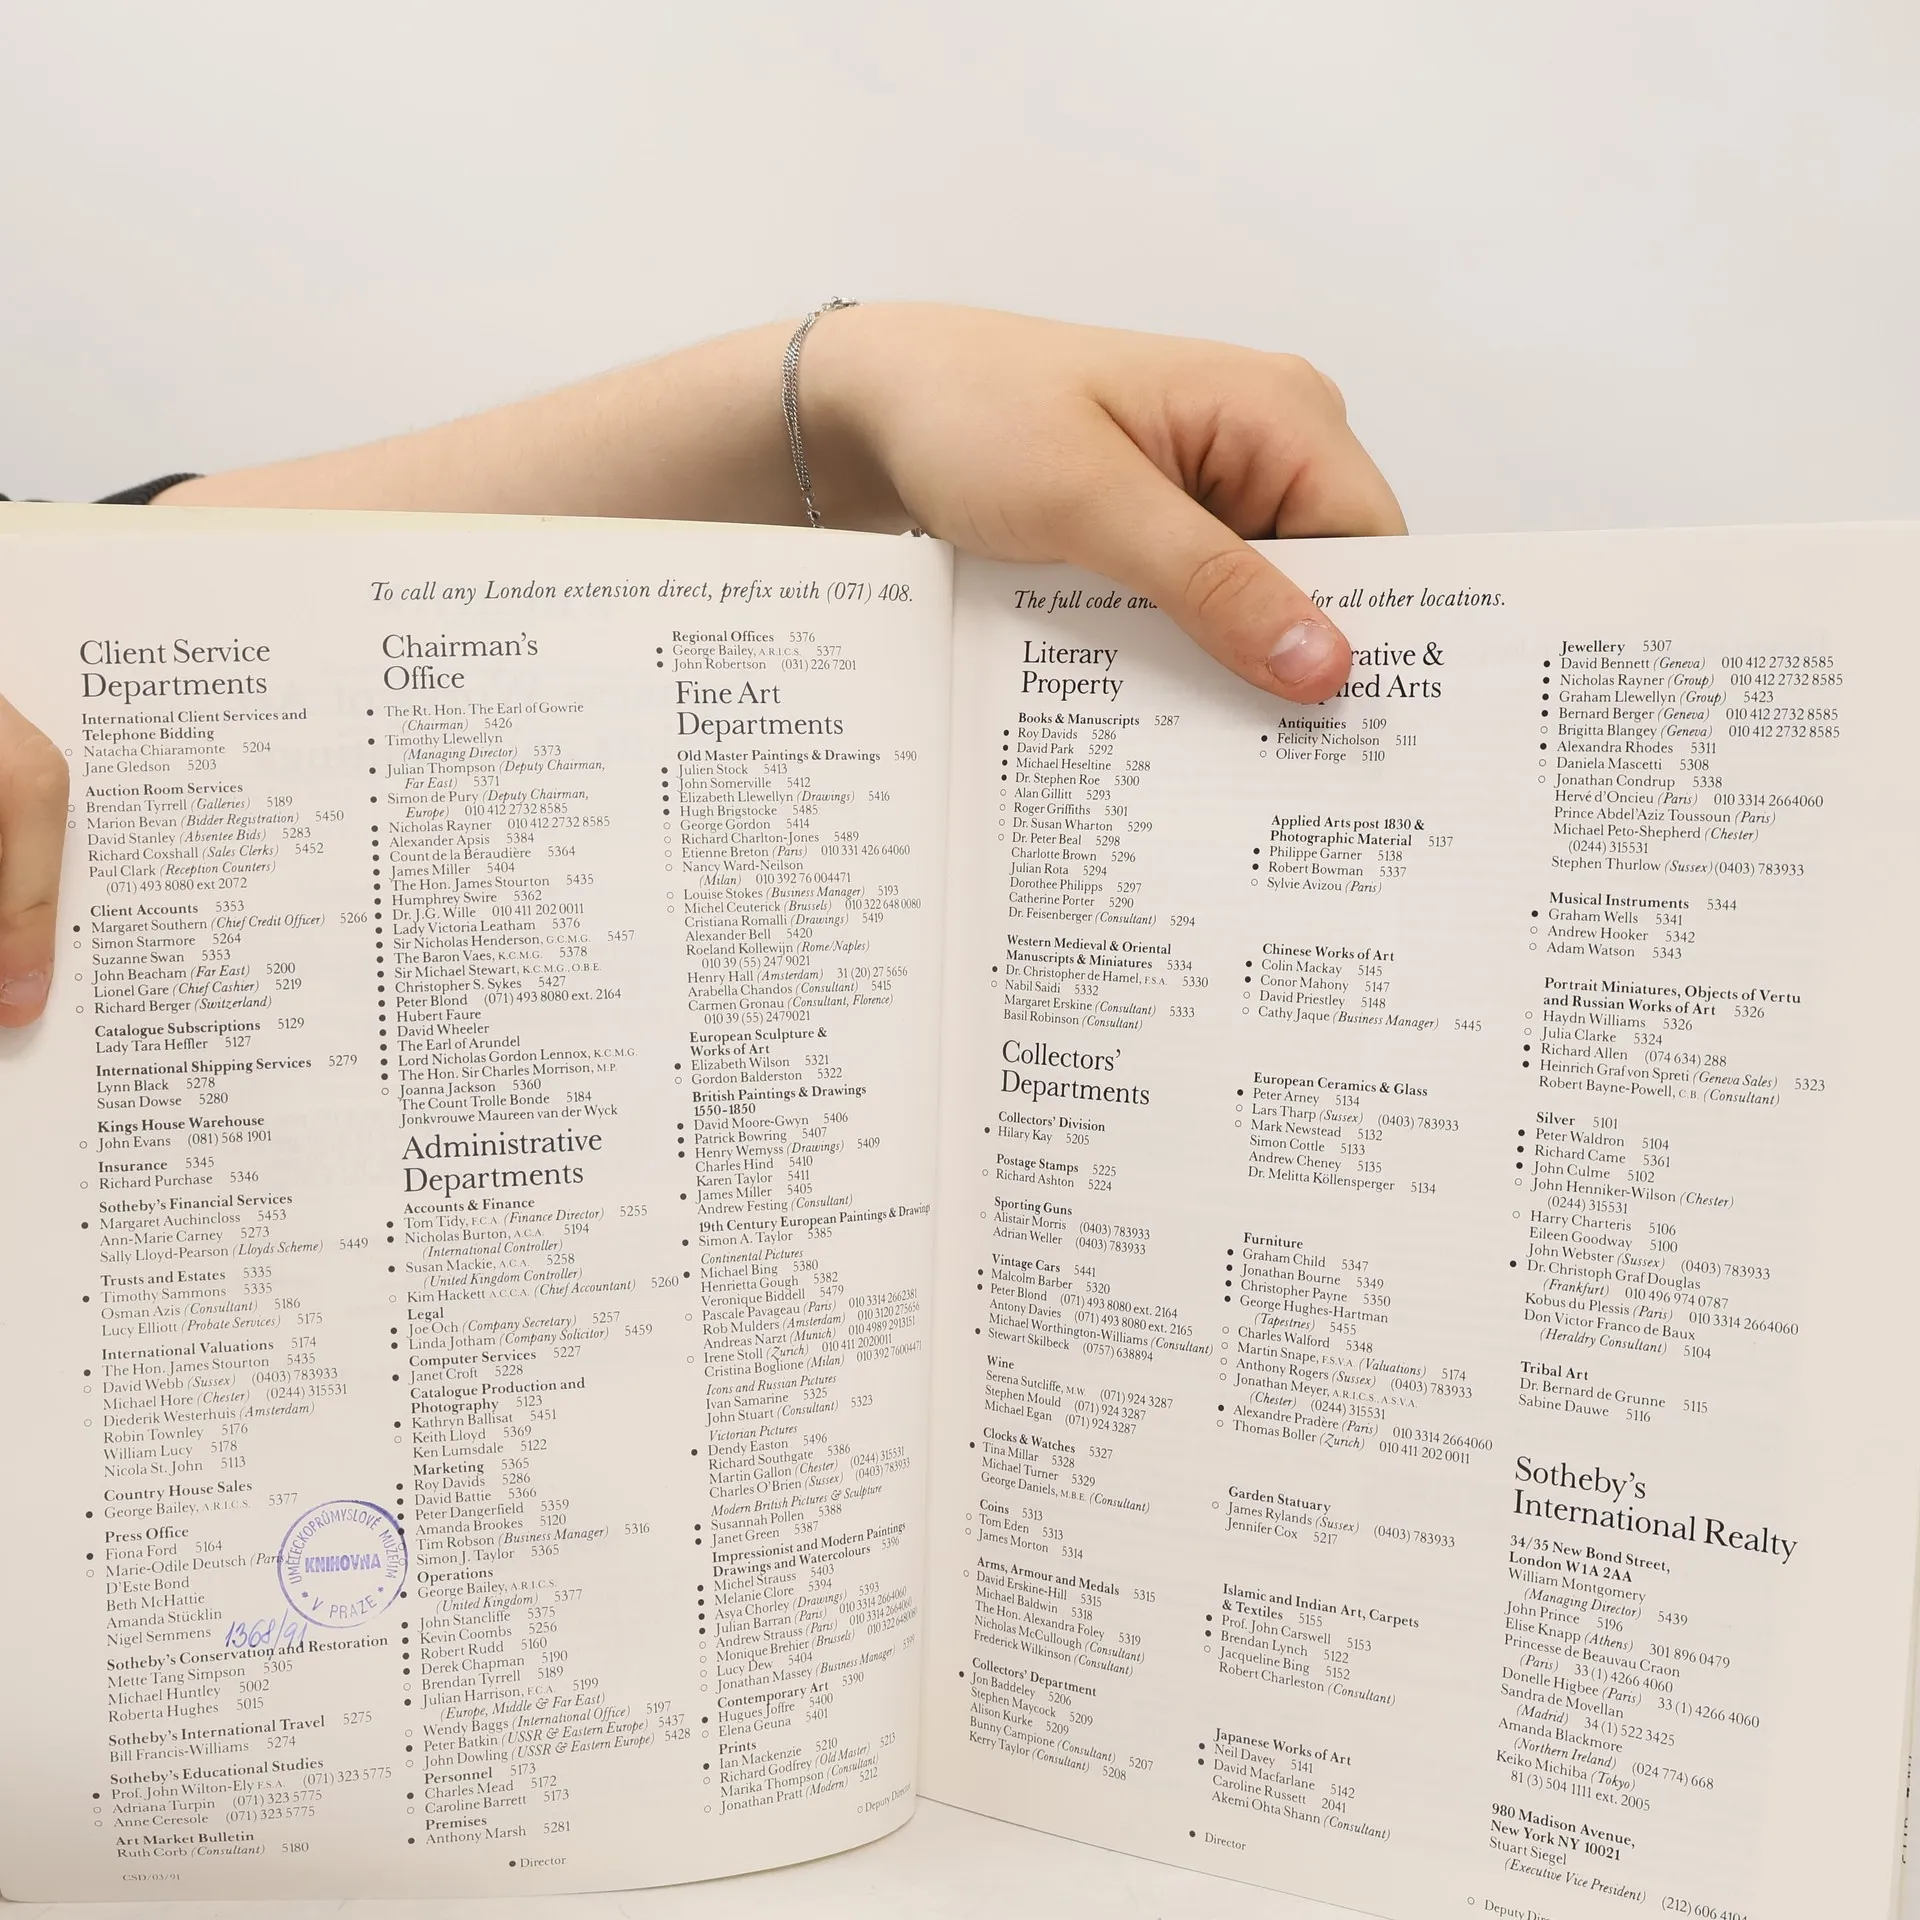 To call any London extension direct, prefix with (071) 408.
Client Service
Departments
International Client Services and
Telephone Bidding
○ Natacha Chiaramonte 5204
Jane Gledson 5203
Auction Room Services
○ Brendan Tyrrell (Galleries) 5189
○ Marion Bevan (Bidder Registration) 5450
David Stanley (Absentee Bids) 5283
Richard Coxshall (Sales Clerks) 5452
Paul Clark (Reception Counters)
(071) 493 8080 ext 2072
Client Accounts 5353
● Margaret Southern (Chief Credit Officer) 5266
○ Simon Starmore 5264
Suzanne Swan 5353
○ John Beacham (Far East) 5200
Lionel Gare (Chief Cashier) 5219
○ Richard Berger (Switzerland)
Catalogue Subscriptions 5129
Lady Tara Heffler 5127
International Shipping Services 5279
Lynn Black 5278
Susan Dowse 5280
Kings House Warehouse
○ John Evans (081) 568 1901
Insurance 5345
○ Richard Purchase 5346
Sotheby's Financial Services
● Margaret Auchincloss 5453
Ann-Marie Carney 5273
Sally Lloyd-Pearson (Lloyds Scheme) 5449
Trusts and Estates 5335
● Timothy Sammons 5335
Osman Azis (Consultant) 5186
Lucy Elliott (Probate Services) 5175
International Valuations 5174
● The Hon. James Stourton 5435
○ David Webb (Sussex) (0403) 783933
Michael Hore (Chester) (0244) 315531
○ Diederik Westerhuis (Amsterdam)
Robin Townley 5176
William Lucy 5178
Nicola St. John 5113
Country House Sales
● George Bailey, A.R.I.C.S. 5377
Press Office
● Fiona Ford 5164
○ Marie-Odile Deutsch
D'Este Bond
Beth McHattie
Amanda Stücklin
Nigel Semmens
1368/91
UMĚLECKOPRŮMYSLOVÉ MUZEUM
KNIHOVNA
V PRAZE
Sotheby's Conservation and Restoration
Mette Tang Simpson 5305
Michael Huntley 5002
Roberta Hughes 5015
Sotheby's International Travel 5275
Bill Francis-Williams 5274
Sotheby's Educational Studies
● Prof. John Wilton-Ely F.S.A. (071) 323 5775
○ Adriana Turpin (071) 323 5775
○ Anne Ceresole (071) 323 5775
Art Market Bulletin
Ruth Corb (Consultant) 5180
CSD/03/91
Chairman's
Office
● The Rt. Hon. The Earl of Gowrie
(Chairman) 5426
● Timothy Llewellyn
(Managing Director) 5373
● Julian Thompson (Deputy Chairman,
Far East) 5371
● Simon de Pury (Deputy Chairman,
Europe) 010 412 2732 8585
● Nicholas Rayner 010 412 2732 8585
● Alexander Apsis 5384
● Count de la Béraudière 5364
● James Miller 5404
● The Hon. James Stourton 5435
● Humphrey Swire 5362
● Dr. J.G. Wille 010 411 202 0011
● Lady Victoria Leatham 5376
● Sir Nicholas Henderson, G.C.M.G. 5457
● The Baron Vaes, K.C.M.G. 5378
● Sir Michael Stewart, K.C.M.G., O.B.E.
● Christopher S. Sykes 5427
● Peter Blond (071) 493 8080 ext. 2164
● Hubert Faure
● David Wheeler
● The Earl of Arundel
● Lord Nicholas Gordon Lennox, K.C.M.G.
● The Hon. Sir Charles Morrison, M.P.
○ Joanna Jackson 5360
The Count Trolle Bonde 5184
Jonkvrouwe Maureen van der Wyck
Administrative
Departments
Accounts & Finance
● Tom Tidy, F.C.A. (Finance Director) 5255
● Nicholas Burton, A.C.A. 5194
(International Controller)
● Susan Mackie, A.C.A. 5258
(United Kingdom Controller)
○ Kim Hackett A.C.C.A. (Chief Accountant) 5260
Legal
● Joe Och (Company Secretary) 5257
● Linda Jotham (Company Solicitor) 5459
Computer Services 5227
● Janet Croft 5228
Catalogue Production and
Photography 5123
● Kathryn Ballisat 5451
○ Keith Lloyd 5369
Ken Lumsdale 5122
Marketing 5365
● Roy Davids 5286
● David Battie 5366
● Peter Dangerfield 5359
● Amanda Brookes 5120
Tim Robson (Business Manager) 5316
Simon J. Taylor 5365
Operations
● George Bailey, A.R.I.C.S.
(United Kingdom) 5377
● John Stancliffe 5375
● Kevin Coombs 5256
● Robert Rudd 5160
● Derek Chapman 5190
○ Brendan Tyrrell 5189
● Julian Harrison, F.C.A. 5199
(Europe, Middle & Far East)
○ Wendy Baggs (International Office) 5197
● Peter Batkin (USSR & Eastern Europe) 5437
○ John Dowling (USSR & Eastern Europe) 5428
Personnel 5173
● Charles Mead 5172
○ Caroline Barrett 5173
Premises
● Anthony Marsh 5281
● Director
Regional Offices 5376
● George Bailey, A.R.I.C.S. 5377
● John Robertson (031) 226 7201
Fine Art
Departments
Old Master Paintings & Drawings 5490
● Julien Stock 5413
● John Somerville 5412
● Elizabeth Llewellyn (Drawings) 5416
● Hugh Brigstocke 5485
○ George Gordon 5414
○ Richard Charlton-Jones 5489
○ Etienne Breton (Paris) 010 331 426 64060
○ Nancy Ward-Neilson
(Milan) 010 392 76 004471
○ Louise Stokes (Business Manager) 5193
○ Michel Ceuterick (Brussels) 010 322 648 0080
Cristiana Romalli (Drawings) 5419
Alexander Bell 5420
Roeland Kollewijn (Rome/Naples)
010 39 (55) 247 9021
Henry Hall (Amsterdam) 31 (20) 27 5656
Arabella Chandos (Consultant) 5415
Carmen Gronau (Consultant, Florence)
010 39 (55) 2479021
European Sculpture &
Works of Art
● Elizabeth Wilson 5321
○ Gordon Balderston 5322
British Paintings & Drawings
1550-1850
● David Moore-Gwyn 5406
● Patrick Bowring 5407
● Henry Wemyss (Drawings) 5409
Charles Hind 5410
Karen Taylor 5411
● James Miller 5405
Andrew Festing (Consultant)
19th Century European Paintings & Drawings
● Simon A. Taylor 5385
Continental Pictures
● Michael Bing 5380
Henrietta Gough 5382
Veronique Biddell 5479
○ Pascale Pavageau (Paris) 010 3314 2662381
Rob Mulders (Amsterdam) 010 3120 275656
Andreas Narzt (Munich) 010 4989 2913151
○ Irene Stoll (Zurich) 010 411 2020011
Cristina Boglione (Milan) 010 392 7600447
Icons and Russian Pictures
Ivan Samarine 5325
John Stuart (Consultant) 5323
Victorian Pictures
● Dendy Easton 5496
Richard Southgate 5386
Martin Gallon (Chester) (0244) 315531
Charles O'Brien (Sussex) (0403) 783933
Modern British Pictures & Sculpture
● Susannah Pollen 5388
● Janet Green 5387
Impressionist and Modern Paintings
Drawings and Watercolours 5396
● Michel Strauss 5403
● Melanie Clore 5394
● Asya Chorley (Drawings) 5393
● Julian Barran (Paris) 010 3314 2664060
○ Andrew Strauss (Paris) 010 3314 2664060
○ Monique Brehier (Brussels) 010 322 6480080
○ Lucy Dew 5404
○ Jonathan Massey (Business Manager)
Contemporary Art 5390
● Hugues Joffre 5400
○ Elena Geuna 5401
Prints
● Ian Mackenzie 5210
○ Richard Godfrey (Old Master) 5213
Marika Thompson (Consultant)
○ Jonathan Pratt (Modern) 5212
○ Deputy
The full code and
for all other locations.
Literary
Property
Books & Manuscripts 5287
● Roy Davids 5286
● David Park 5292
● Michael Heseltine 5288
● Dr. Stephen Roe 5300
○ Alan Gillitt 5293
○ Roger Griffiths 5301
○ Dr. Susan Wharton 5299
○ Dr. Peter Beal 5298
Charlotte Brown 5296
Julian Rota 5294
Dorothee Philipps 5297
Catherine Porter 5290
Dr. Feisenberger (Consultant) 5294
Western Medieval & Oriental
Manuscripts & Miniatures 5334
● Dr. Christopher de Hamel, F.S.A. 5330
○ Nabil Saidi 5332
Margaret Erskine (Consultant) 5333
Basil Robinson (Consultant)
Collectors'
Departments
Collectors' Division
● Hilary Kay 5205
Postage Stamps 5225
○ Richard Ashton 5224
Sporting Guns
○ Alistair Morris (0403) 783933
Adrian Weller (0403) 783933
Vintage Cars 5441
● Malcolm Barber 5320
● Peter Blond (071) 493 8080 ext. 2164
Antony Davies (071) 493 8080 ext. 2165
Michael Worthington-Williams (Consultant)
● Stewart Skilbeck (0757) 638894
Wine
Serena Sutcliffe, M.W (071) 924 3287
Stephen Mould (071) 924 3287
Michael Egan (071) 924 3287
Clocks & Watches 5327
● Tina Millar 5328
Michael Turner 5329
George Daniels, M.B.E. (Consultant)
Coins 5313
○ Tom Eden 5313
○ James Morton 5314
Arms, Armour and Medals 5315
○ David Erskine-Hill 5315
Michael Baldwin 5318
The Hon. Alexandra Foley 5319
Nicholas McCullough (Consultant)
Frederick Wilkinson (Consultant)
Collectors' Department
● Jon Baddeley 5206
Stephen Maycock 5209
Alison Kurke 5209
Bunny Campione (Consultant) 5207
Kerry Taylor (Consultant) 5208
rative &
ied Arts
Antiquities 5109
● Felicity Nicholson 5111
○ Oliver Forge 5110
Applied Arts post 1830 &
Photographic Material 5137
● Philippe Garner 5138
● Robert Bowman 5337
○ Sylvie Avizou (Paris)
Chinese Works of Art
● Colin Mackay 5145
● Conor Mahony 5147
○ David Priestley 5148
○ Cathy Jaque (Business Manager) 5445
European Ceramics & Glass
● Peter Arney 5134
○ Lars Tharp (Sussex) (0403) 783933
○ Mark Newstead 5132
Simon Cottle 5133
Andrew Cheney 5135
Dr. Melitta Köllensperger 5134
Furniture
● Graham Child 5347
● Jonathan Bourne 5349
● Christopher Payne 5350
● George Hughes-Hartman
(Tapestries) 5455
○ Charles Walford 5348
○ Martin Snape, F.S.V.A. (Valuations) 5174
○ Anthony Rogers (Sussex) (0403) 783933
○ Jonathan Meyer, A.R.I.C.S., A.S.V.A.
(Chester) (0244) 315531
● Alexandre Pradère (Paris) 010 3314 2664060
○ Thomas Boller (Zurich) 010 411 202 0011
Garden Statuary
○ James Rylands (Sussex) (0403) 783933
Jennifer Cox 5217
Islamic and Indian Art, Carpets
& Textiles 5155
● Prof. John Carswell 5153
● Brendan Lynch 5122
○ Jacqueline Bing 5152
Robert Charleston (Consultant)
Japanese Works of Art
● Neil Davey 5141
● David Macfarlane 5142
Caroline Russett 2041
Akemi Ohta Shann (Consultant)
● Director
Jewellery 5307
● David Bennett (Geneva) 010 412 2732 8585
● Nicholas Rayner (Group) 010 412 2732 8585
● Graham Llewellyn (Group) 5423
● Bernard Berger (Geneva) 010 412 2732 8585
○ Brigitta Blangey (Geneva) 010 412 2732 8585
● Alexandra Rhodes 5311
○ Daniela Mascetti 5308
○ Jonathan Condrup 5338
Hervé d'Oncieu (Paris) 010 3314 2664060
Prince Abdel'Aziz Toussoun (Paris)
Michael Peto-Shepherd (Chester)
(0244) 315531
Stephen Thurlow (Sussex)(0403) 783933
Musical Instruments 5344
● Graham Wells 5341
○ Andrew Hooker 5342
○ Adam Watson 5343
Portrait Miniatures, Objects of Vertu
and Russian Works of Art 5326
○ Haydn Williams 5326
○ Julia Clarke 5324
● Richard Allen (074 634) 288
● Heinrich Graf von Spreti (Geneva Sales) 5323
Robert Bayne-Powell, C.B. (Consultant)
Silver 5101
● Peter Waldron 5104
● Richard Came 5361
● John Culme 5102
○ John Henniker-Wilson (Chester)
(0244) 315531
○ Harry Charteris 5106
Eileen Goodway 5100
John Webster (Sussex) (0403) 783933
● Dr. Christoph Graf Douglas
(Frankfurt) 010 496 974 0787
Kobus du Plessis (Paris) 010 3314 2664060
Don Victor Franco de Baux
(Heraldry Consultant) 5104
Tribal Art
Dr. Bernard de Grunne 5115
Sabine Dauwe 5116
Sotheby's
International Realty
34/35 New Bond Street,
London W1A 2AA
William Montgomery
(Managing Director) 5439
John Prince 5196
Elise Knapp (Athens) 301 896 0479
Princesse de Beauvau Craon
(Paris) 33 (1) 4266 4060
Donelle Higbee (Paris) 33 (1) 4266 4060
Sandra de Movellan
(Madrid) 34 (1) 522 3425
Amanda Blackmore
(Northern Ireland) (024 774) 668
Keiko Michiba (Tokyo)
81 (3) 504 1111 ext. 2005
980 Madison Avenue,
New York NY 10021
Stuart Siegel
(Executive Vice President) (212) 606 4104
○ Deputy